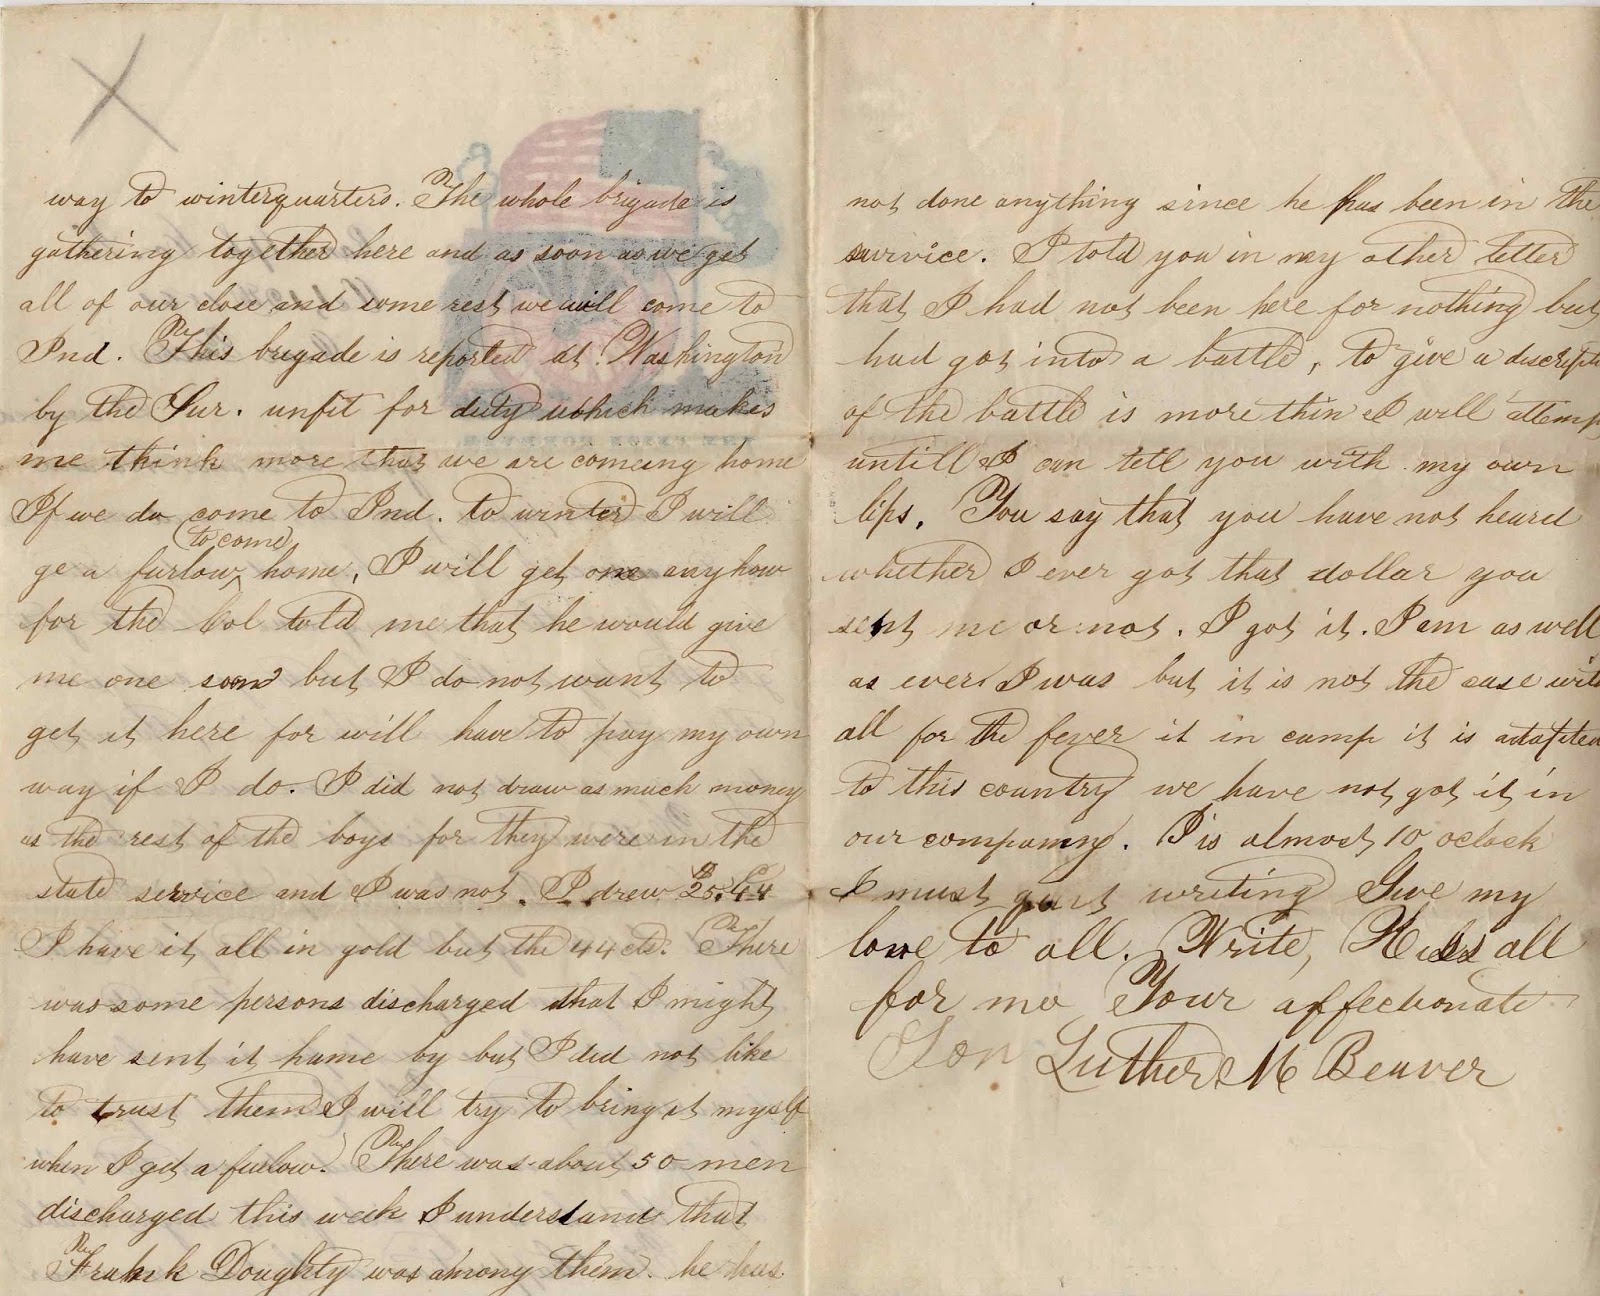 way to winterquarters. The whole brigade is
gathering together here and as soon as we get
all of our close and some rest we will come to
Ind. This brigade is reported at Washington
by the Sur. unfit for duty which makes
me think more that we are comeing home
If we do come to Ind. to winter I will
to come
ge a furlow home. I will get one anyhow
for the Col told me that he would give
me one soon but I do not want to
get it here for will have to pay my own
way if I do. I did not draw as much money
as the rest of the boys for they were in the
state service and I was not. I drew 25.44
I have it all in gold but the 44 cts. There
was some persons discharged that I might
have sent it hame by but I did not like
to trust them I will try to bring it myself
when I get a furlow. There was about 50 men
discharged this week I understand that
Frank Doughty was among them. he has
not done anything since he has been in the
survice. I told you in my other letter
that I had not been here for nothing but
had got into a battle, to give a discripti
of the battle is more thin I will attemp
untill I can tell you with my own
lips. You say that you have not heard
whether I ever got that dollar you
sent me or not. I got it. I am as well
as ever I was but it is not the case with
all for the fever it in camp it is adapted
to this country we have not got it in
our company. I is almost 10 oclock
I must quit writing Give my
love to all. Write, all
for me Your affectionate
Son Luther M Beaver